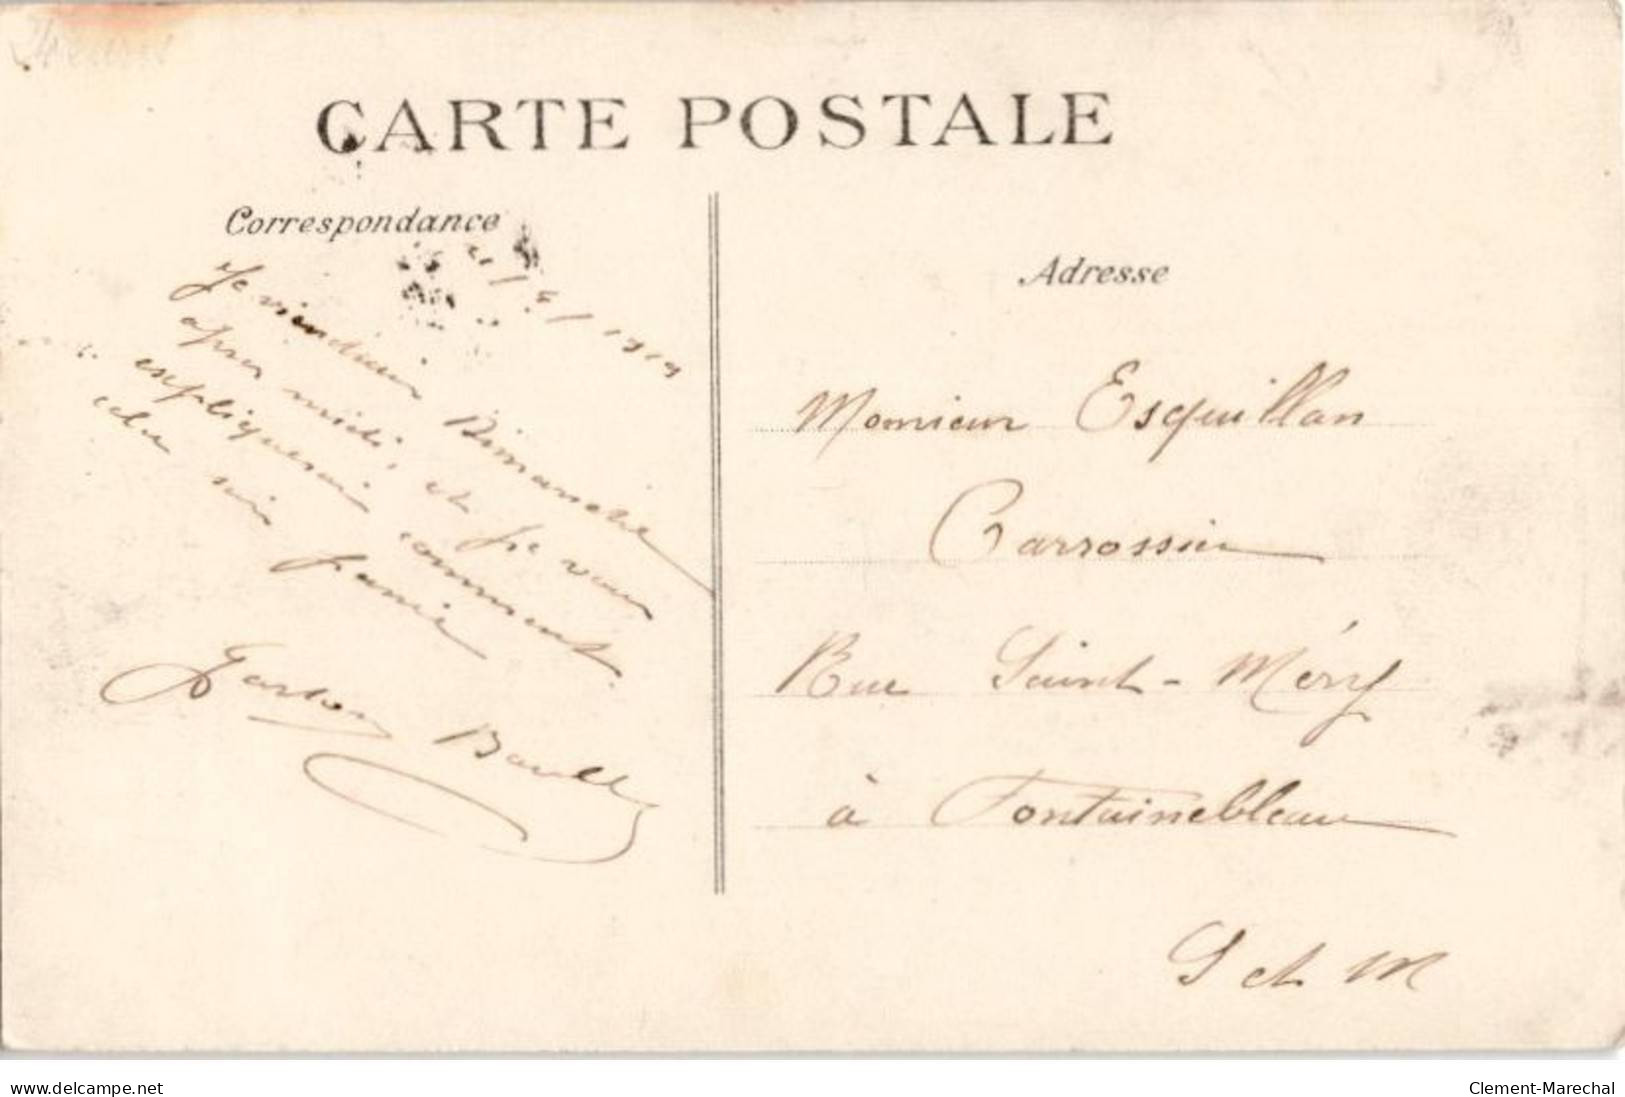 CARTE POSTALE
Correspondance
Adresse
Je viendrai Dimanche
après midi, et je vous
expliquerai comment
cela
Gaston
Monsieur Esquillan
Carrossier
Rue Saint-Méry
à Fontainebleau
S et M
www.delcampe.net
Clement-Marechal